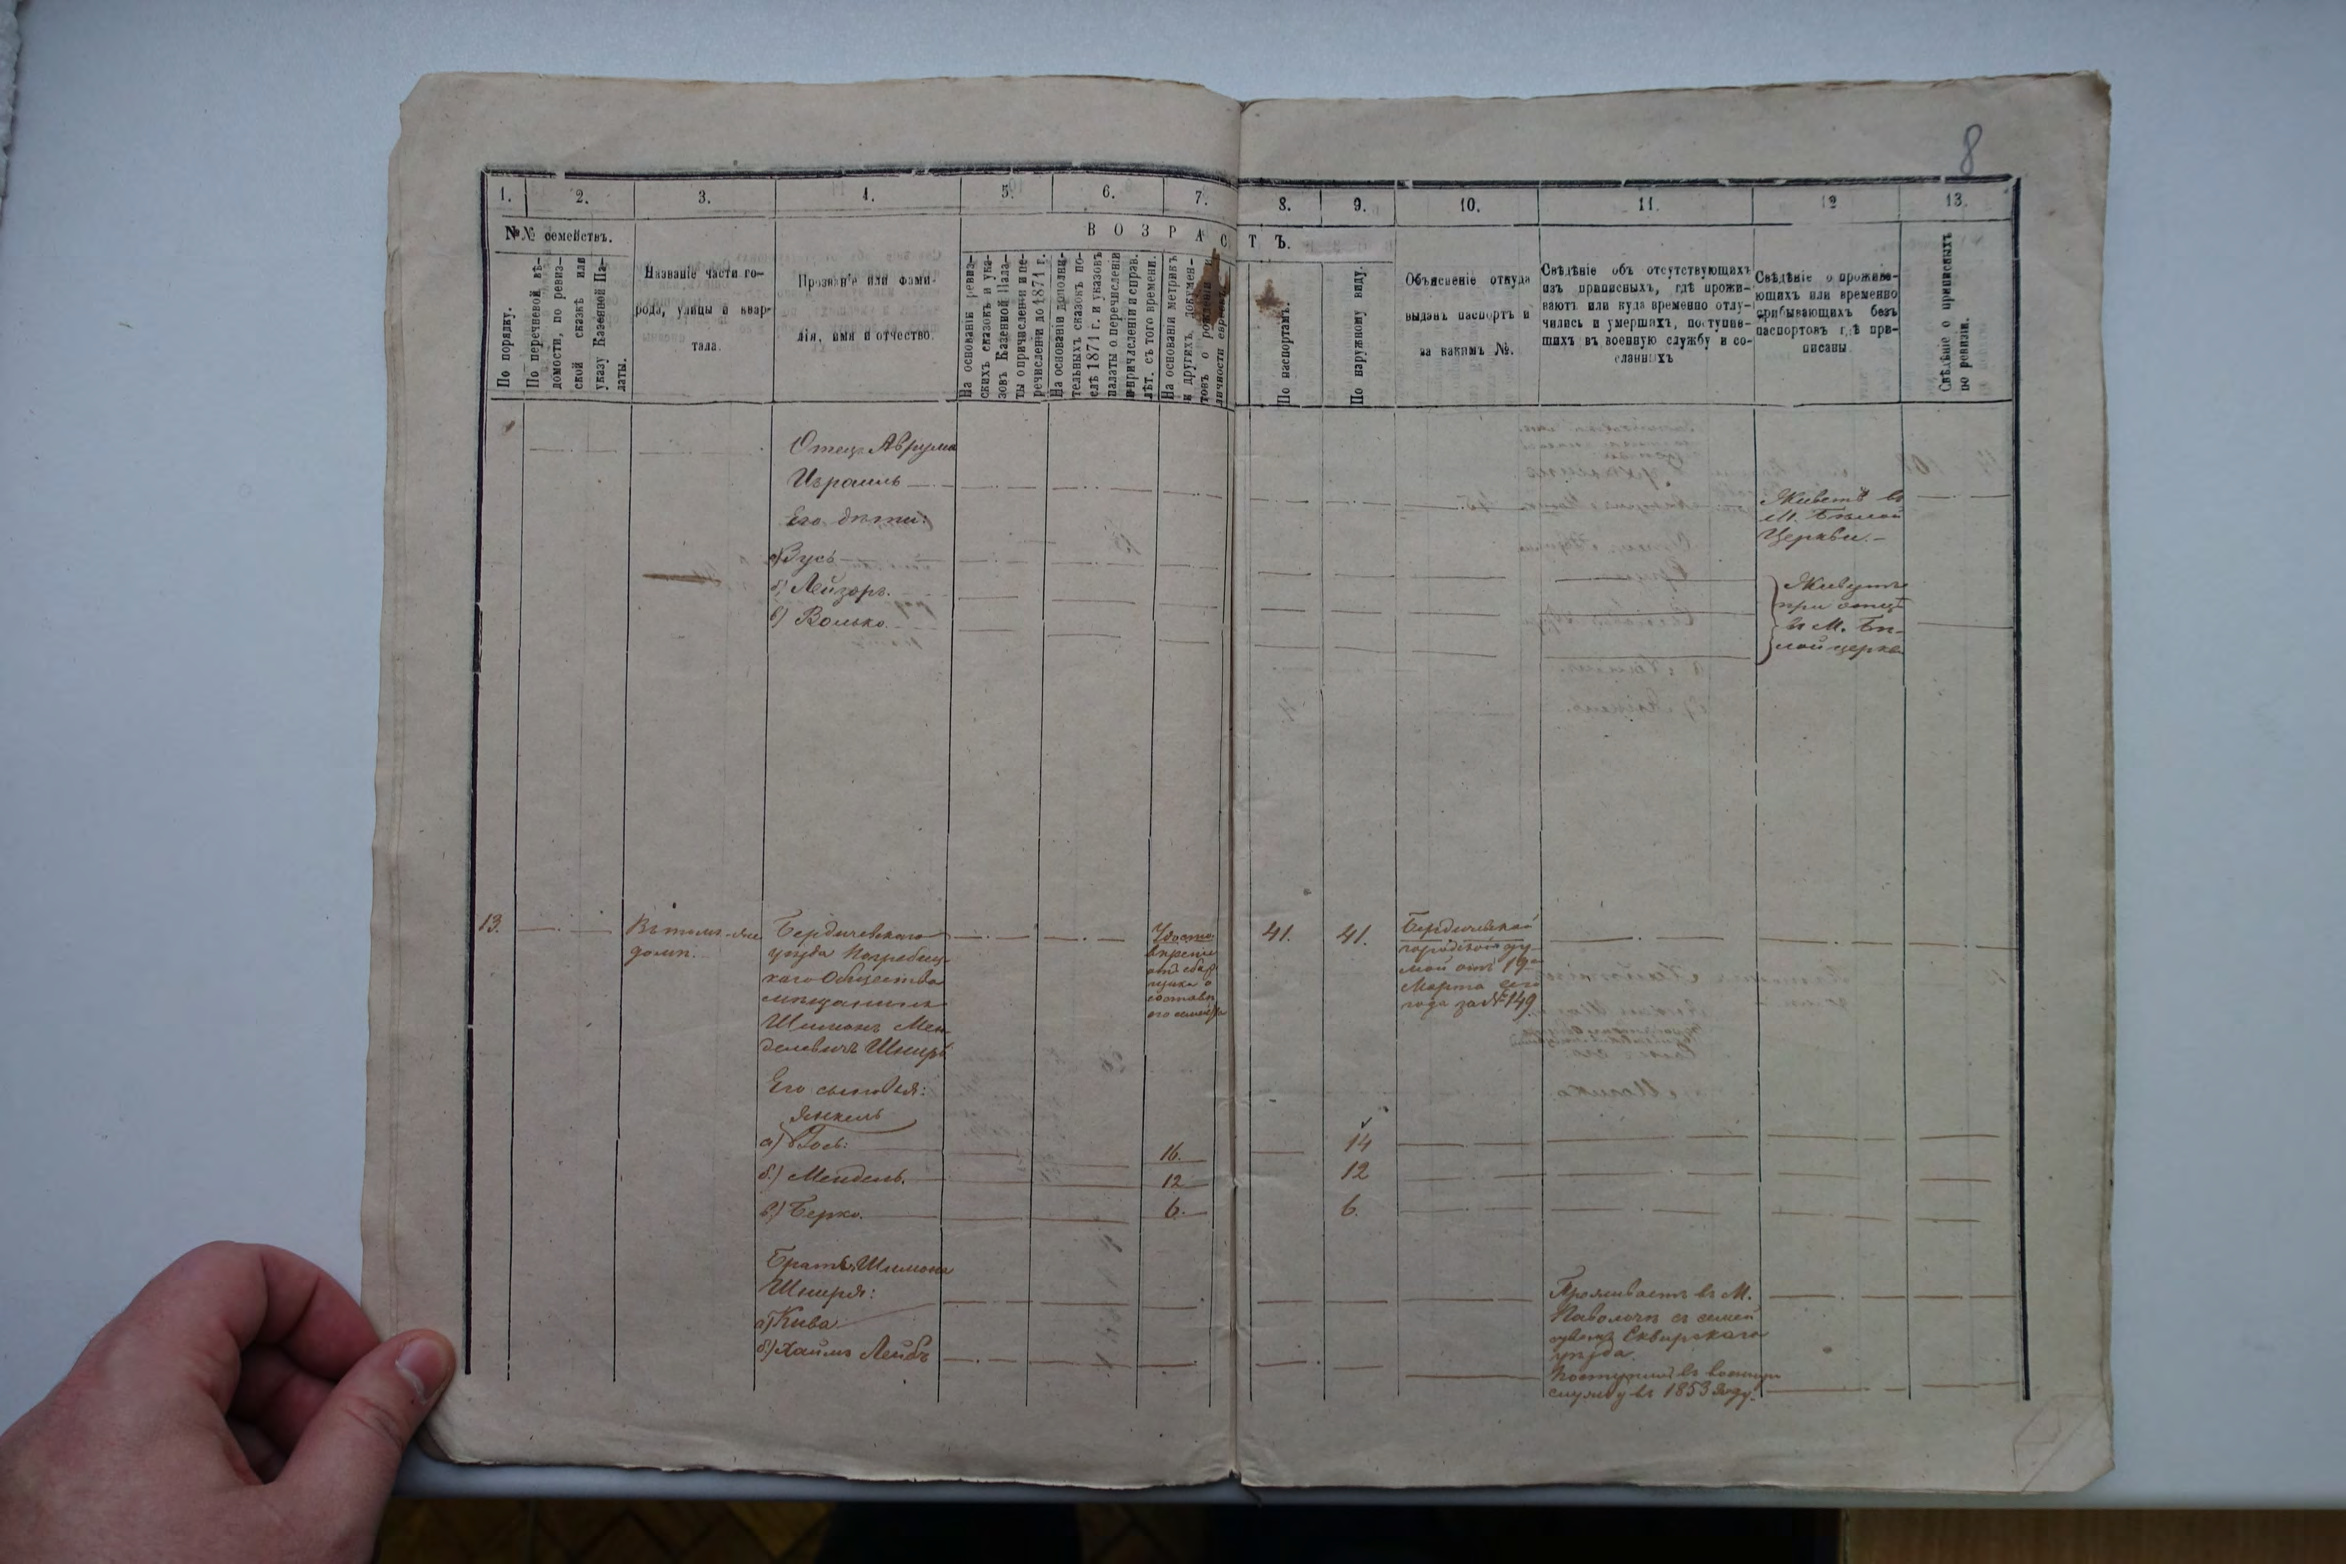 8
1. 2. 3. 4. 5. 6. 7. 8. 9. 10. 11. 12 13.
№№ семействъ.
В О З Р А С Т Ъ.
По порядку.
По перечневой вѣ-
домости, по ревиз-
ской сказкѣ или
указу Казенной Па-
латы.
Названіе части го-
рода, улицы и квар-
тала.
Прозваніе или фами-
лія, имя и отчество.
На основаніи ревиз-
скихъ сказокъ и ука-
зовъ Казенной Пала-
ты о причисленіи и пе-
речисленіи до 1871 г.
На основаніи дополни-
тельныхъ сказокъ по-
слѣ 1871 г. и указовъ
палаты о перечисленіи
и причисленіи и справ.
лѣт. съ того времени.
На основаніи метрикъ
и другихъ докумен-
товъ о рожденіи и
личности евреевъ.
По паспортамъ.
По наружному виду.
Объясненіе откуда
выданъ паспортъ и
за какимъ №.
Свѣдѣніе объ отсутствующихъ
изъ приписныхъ, гдѣ прожи-
ваютъ или куда временно отлу-
чились и умершихъ, поступив-
шихъ въ военную службу и со-
сланныхъ
Свѣдѣніе о прожива-
ющихъ или временно
прибывающихъ безъ
паспортовъ гдѣ при-
писаны
Свѣдѣніе о приписныхъ
по ревизіи.
Отецъ Аврума
Израиль
Его дѣти:
а) Зусь
б) Лейзоръ.
в) Волько.
Живетъ въ
М. Бѣлой
Церкви.
Живутъ
при отцѣ
въ М. Бѣ-
лой церкви
13.
Въ томъ же
домѣ.
Бердичевскаго
уѣзда Погребищ-
каго Общества
мѣщанинъ
Шимонъ Мен-
делевичъ Шнирь
Его сыновья:
Янкель
а) Іось:
б) Мендель.
в) Берко.
Братья Шимона
Шниря:
а) Кива
б) Хаимъ Лейбъ
о составѣ
его семейства
16.
12
6.
41.
41.
14
12
6.
Бердичевской
городской ду-
мой отъ 19
Марта сего
года за № 149.
Проживаетъ въ М.
Паволочи съ семей
ствомъ Сквирскаго
уѣзда.
Поступилъ въ военную
службу въ 1853 году.